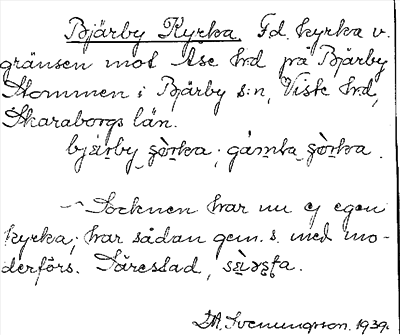 Bjärby Kyrka. Fd. kyrka v.
gränsen mot Åse hrd på Bjärby
Stommen i Bjärby s:n, Viste hrd,
Skaraborgs län.
bjä̀rby ʂòrka; gámla ʂòrka.
— Socknen har nu ej egen
kyrka; har sådan gem. s. med mo-
derförs. Täressad,
Svenungsson. 1939.